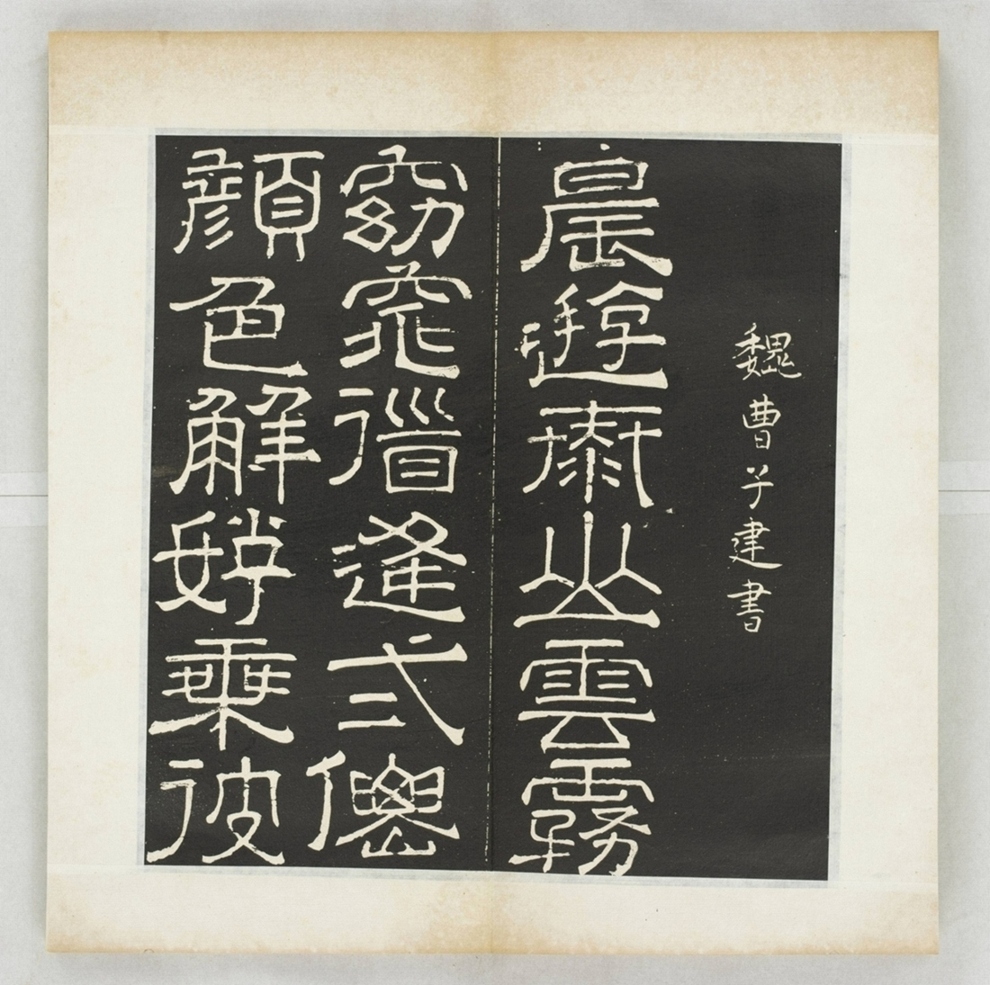 魏曹子建書
晨遊泰山雲霧
窈窕道逢弍僊
顏色觧好乘彼